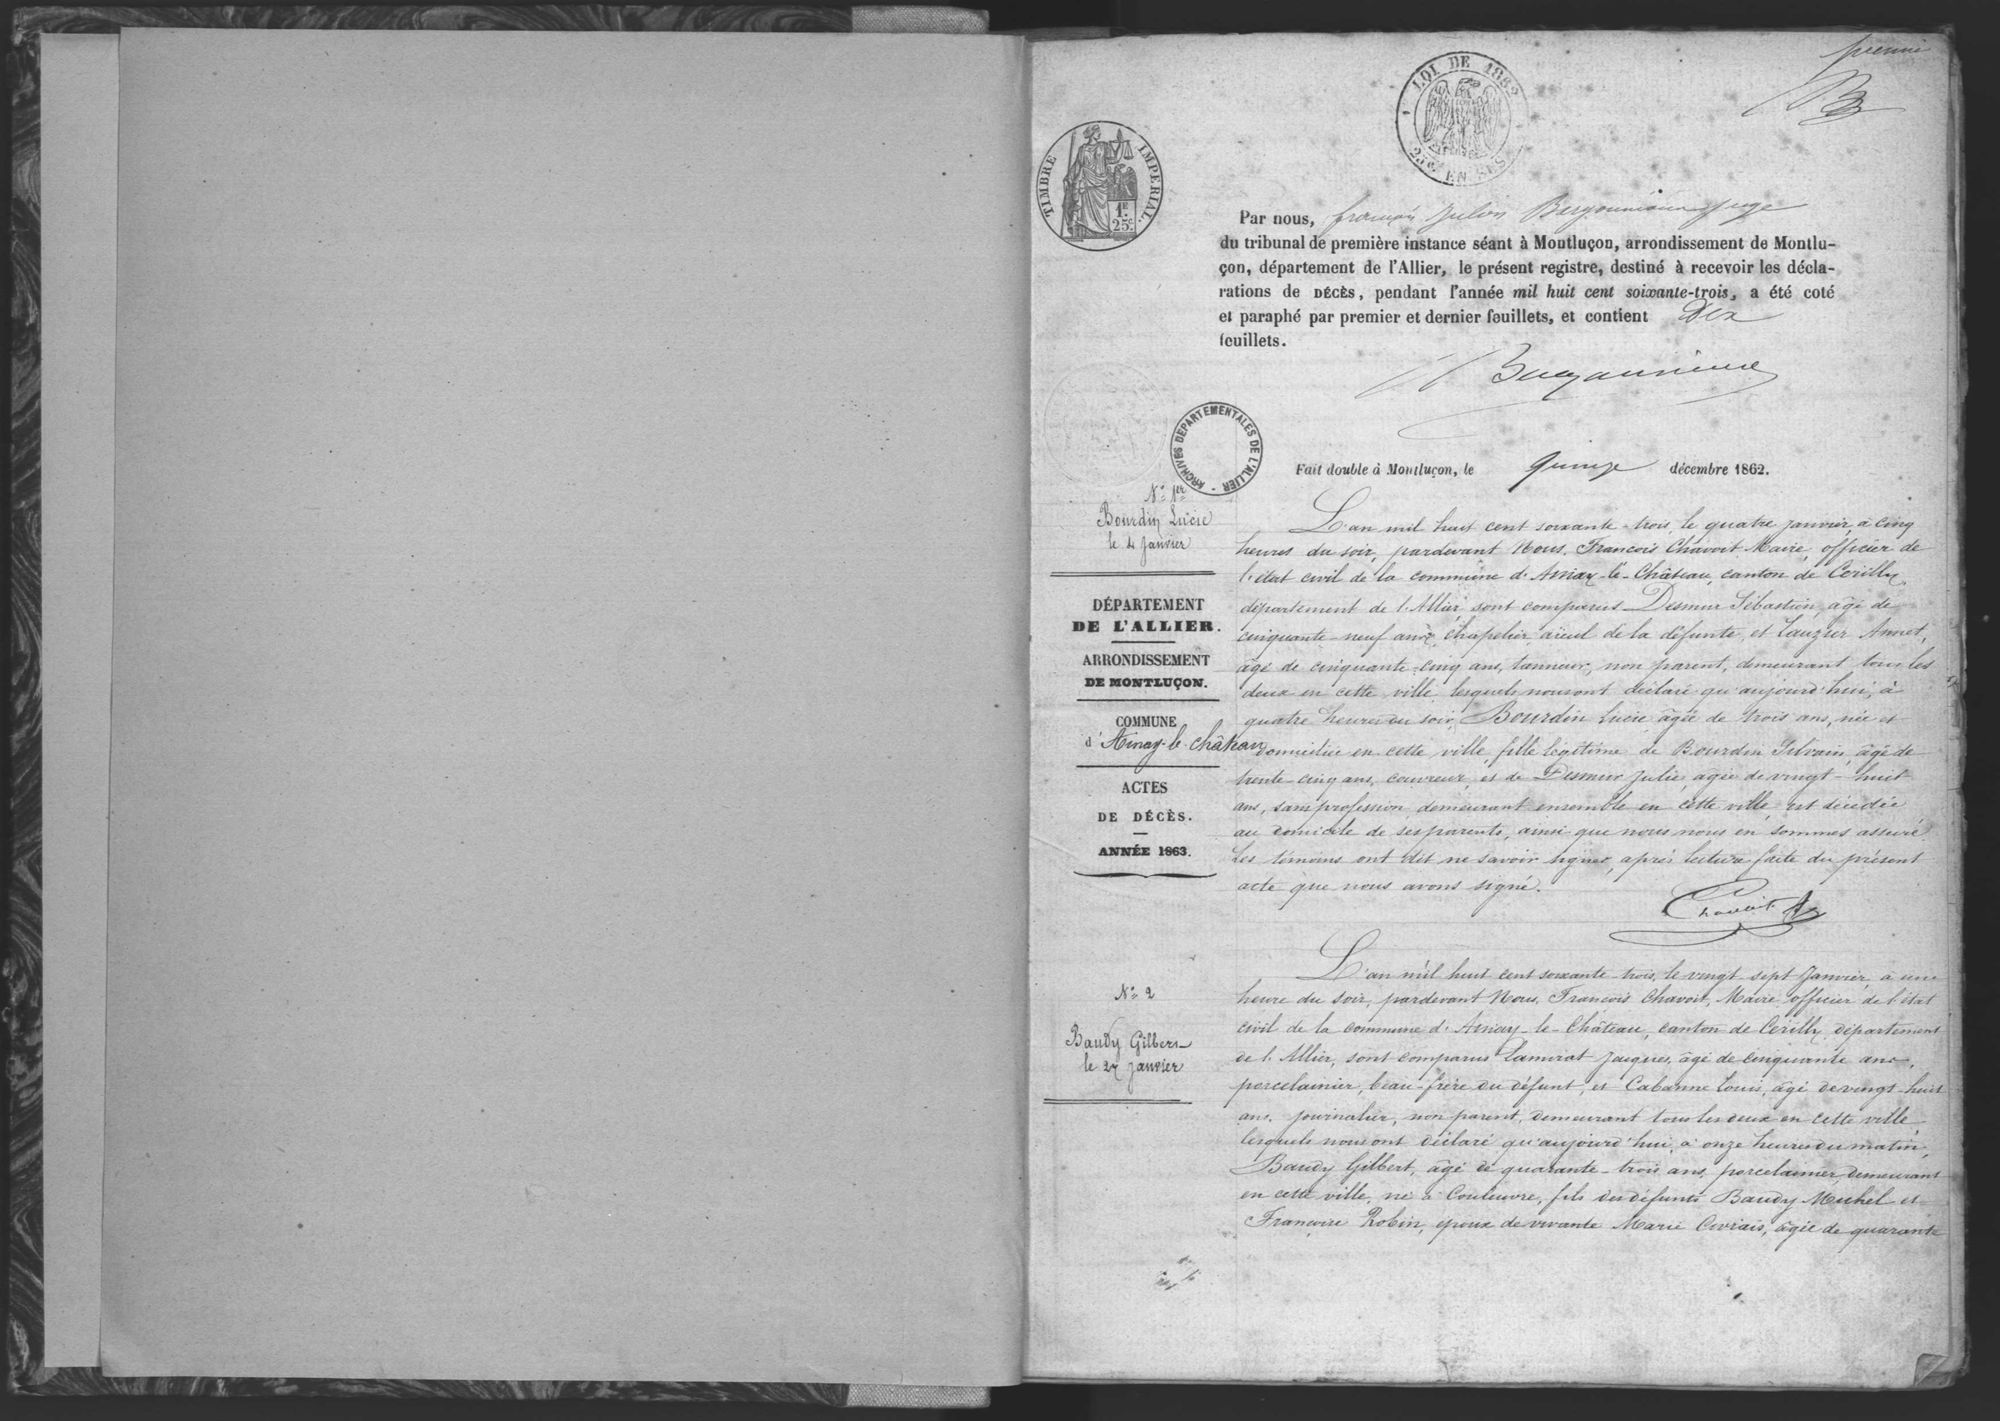 premier
LOI DE 1862
25c EN SUS
TIMBRE IMPERIAL
1F.
25c
Par nous, françois Julien Bergounioux juge
du tribunal de première instance séant à Montluçon, arrondissement de Montlu-
çon, département de l'Allier, le présent registre, destiné à recevoir les décla-
rations de DÉCÈS, pendant l'année mil huit cent soixante-trois, a été coté
et paraphé par premier et dernier feuillets, et contient Dix
feuillets.
ARCHIVES DÉPARTEMENTALES DE L'ALLIER
Fait double à Montluçon, le quinze décembre 1862.
N° 1er
Bourdin Lucie
le 4 Janvier
DÉPARTEMENT
DE L'ALLIER.
ARRONDISSEMENT
DE MONTLUÇON.
COMMUNE
d'Ainay-le-Château
ACTES
DE DÉCÈS.
ANNÉE 1863.
L'an mil huit cent soixante-trois, le quatre janvier, à cinq
heures du soir, pardevant Nous, François Chavoit Maire, officier de
l'état civil de la commune d'Ainay-le-Château, canton de Cerilly,
département de l'Allier, sont comparus Desmur Sébastien, âgé de
cinquante-neuf ans, chapelier aïeul de la défunte, et Lauzier Annet,
âgé de cinquante-cinq ans, tanneur, non parent, demeurant tous les
deux en cette ville, lesquels nous ont déclaré qu'aujourd'hui, à
quatre heures du soir, Bourdin Lucie âgée de trois ans, née et
domiciliée en cette ville, fille légitime de Bourdin Silvain, âgé de
trente-cinq ans, couvreur, et de Desmur Julie, âgée de vingt-huit
ans, sans profession, demeurant ensemble en cette ville, est décédée
au domicile de ses parents, ainsi que nous nous en sommes assuré.
Les témoins ont dit ne savoir signer, après lecture faite du présent
acte que nous avons signé.
Chavoit
N° 2
Baudy Gilbert
le 27 Janvier
L'an mil huit cent soixante-trois, le vingt sept Janvier, à une
heure du soir, pardevant Nous, François Chavoit, Maire officier de l'état
civil de la commune d'Ainay-le-Château, canton de Cerilly, département
de l'Allier, sont comparus Lamirat Jacques, âgé de cinquante ans,
porcelainier, beau-frère du défunt, et Cabanne Louis, âgé de vingt-huit
ans, journalier, non parent, demeurant tous les deux en cette ville,
lesquels nous ont déclaré qu'aujourd'hui, à onze heures du matin,
Baudy Gilbert, âgé de quarante-trois ans, porcelainier, demeurant
en cette ville, né à Couleuvre, fils des défunts Baudy Michel et
Françoise Robin, époux de vivante Marie Civrais, âgée de quarante